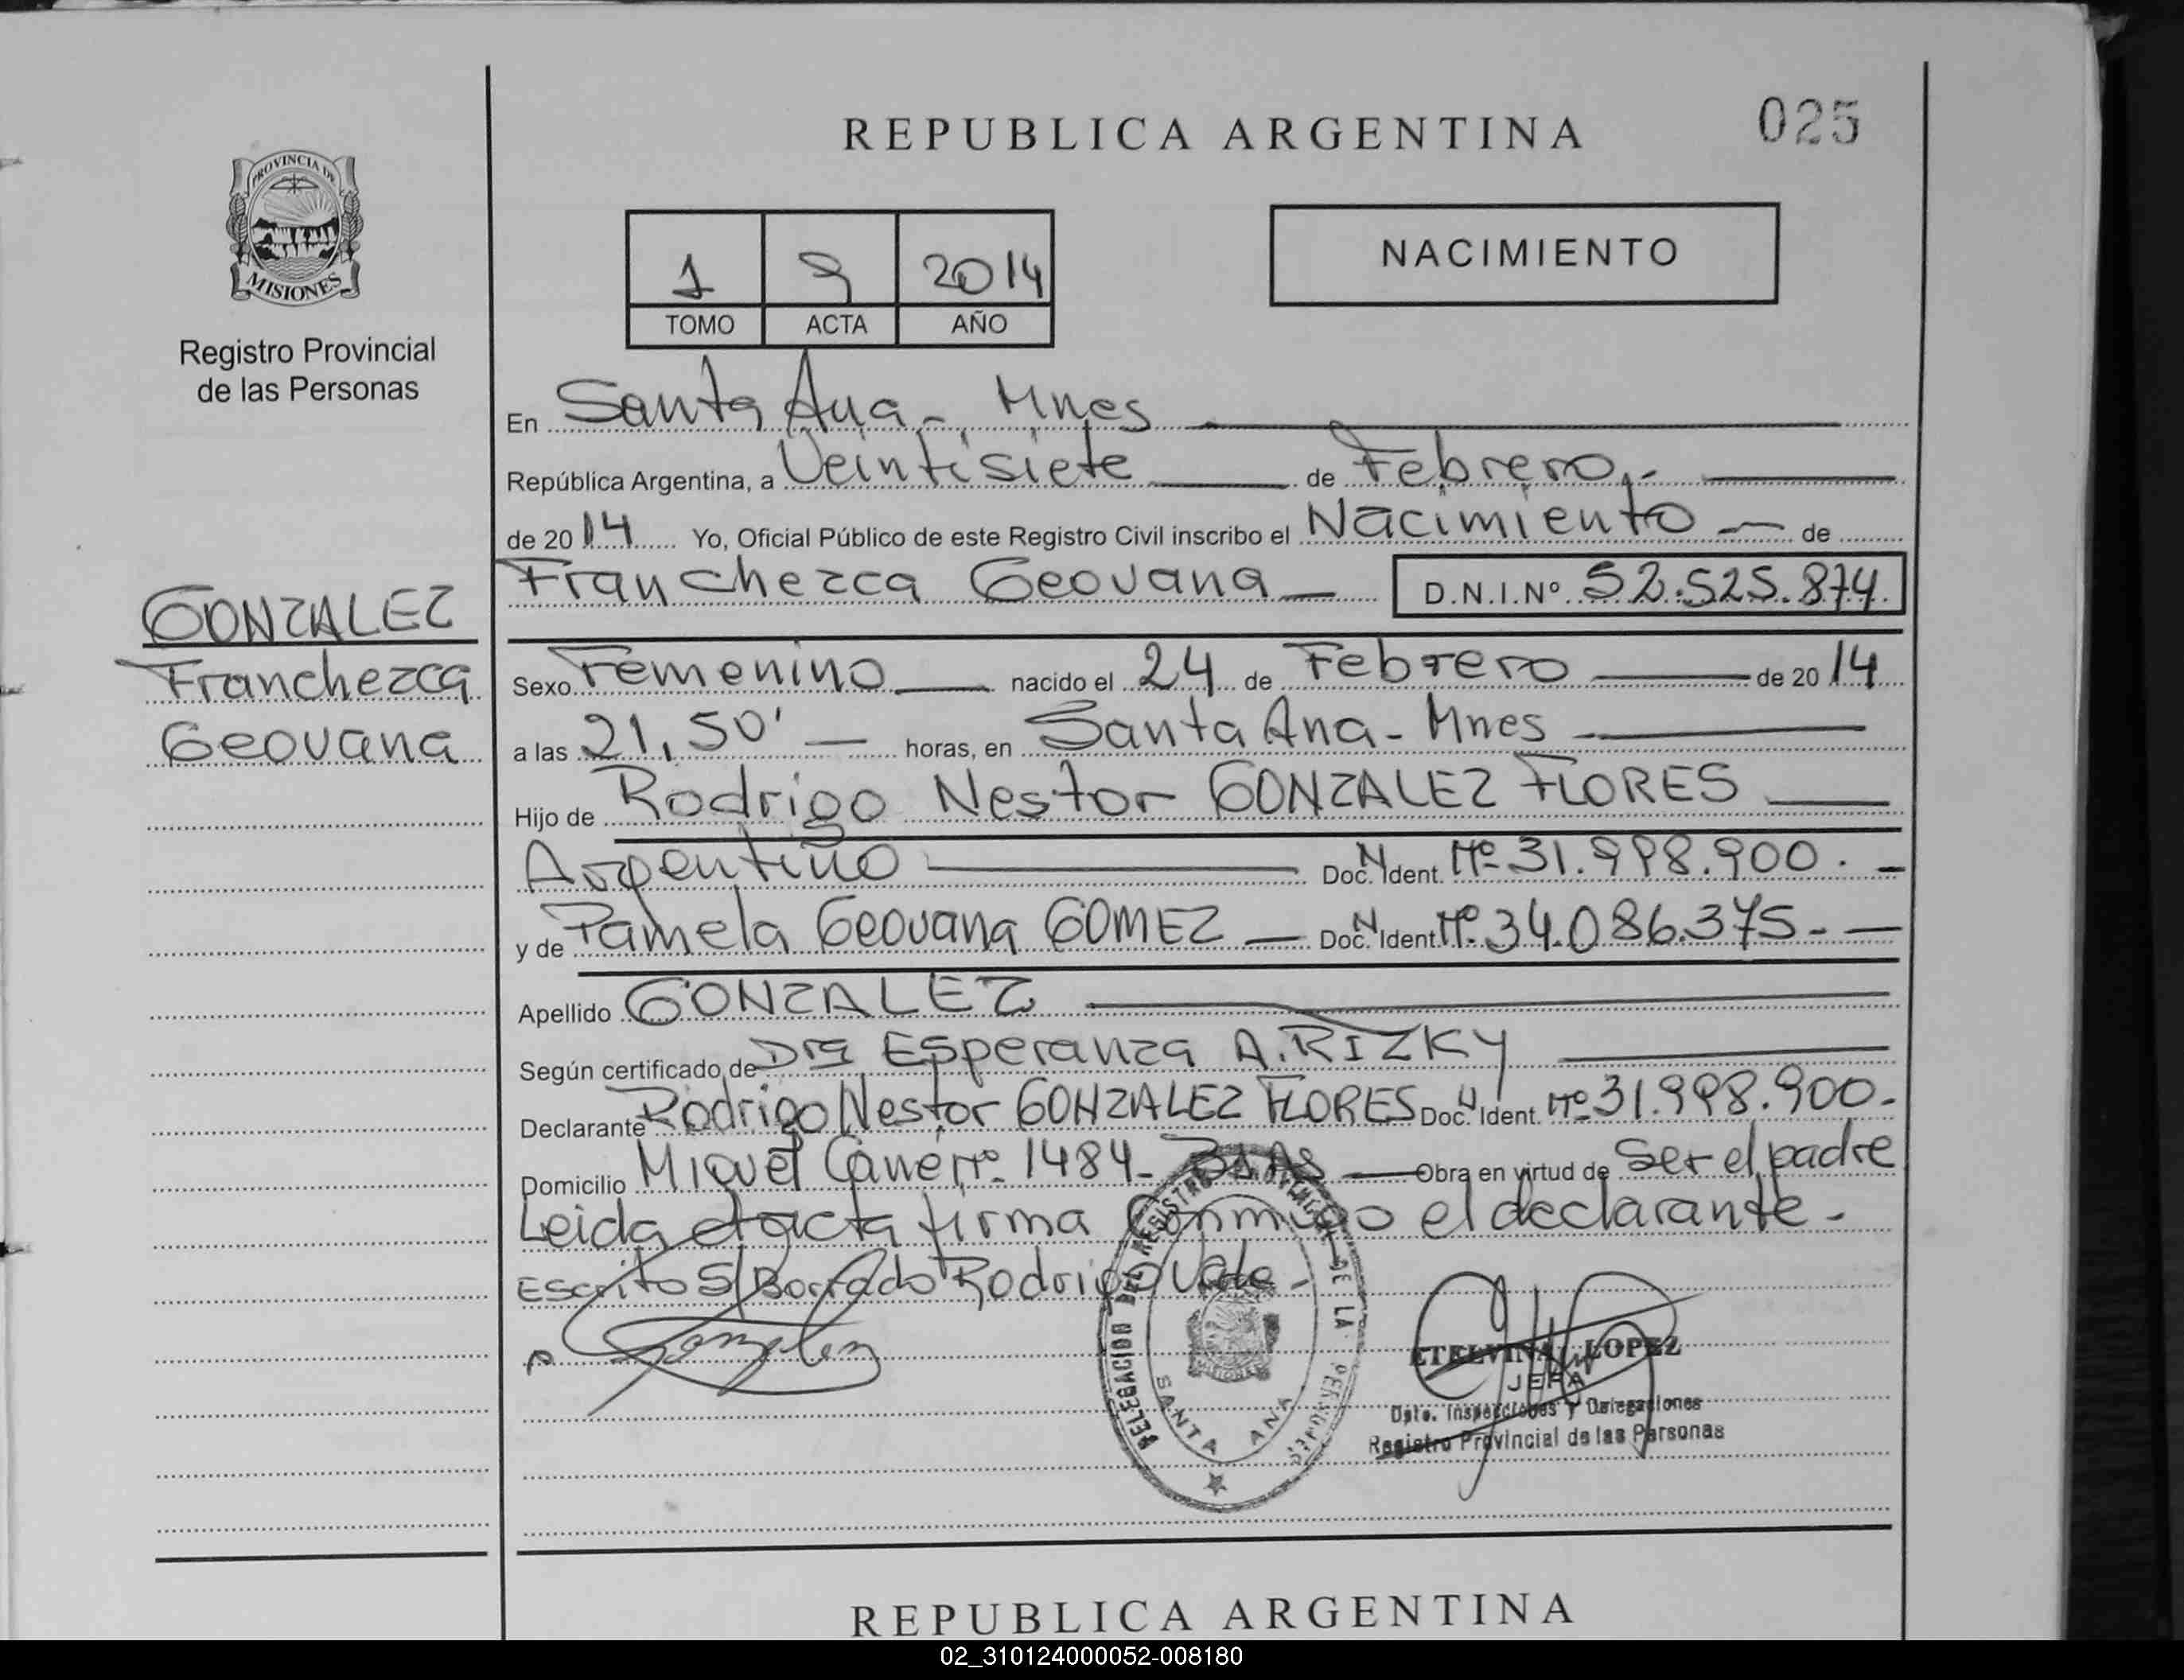 REPUBLICA ARGENTINA
025
PROVINCIA DE
MISIONES
Registro Provincial
de las Personas
1 9 2014
TOMO ACTA AÑO
NACIMIENTO
En Santa Ana - Mnes
República Argentina, a Veintisiete de Febrero.-
de 2014 Yo, Oficial Público de este Registro Civil inscribo el Nacimiento de
Franchezca Geovana D.N.I.Nº 52.525.874
GONZALEZ
Franchezca
Geovana
Sexo Femenino nacido el 24 de Febrero de 2014
a las 21,50' horas, en Santa Ana - Mnes
Hijo de Rodrigo Nestor GONZALEZ FLORES
Argentino Doc. N. Ident. Nº 31.998.900.
y de Pamela Geovana GOMEZ Doc. N. Ident. Nº 34.086.375.-
Apellido GONZALEZ
Según certificado de Dra Esperanza A. RIZKY
Declarante Rodrigo Nestor GONZALEZ FLORES Doc. N. Ident. Nº 31.998.900.
Domicilio Miguel Cané nº 1484- Obra en virtud de Ser el padre
Leida el acta firma Conmigo el declarante.
Escrito S/Borrado Rodrigo Vale -
Gonzalez
DELEGACION DEL REGISTRO PROVINCIAL DE LA PERSONAS
SANTA ANA
ETELVINA LOPEZ
JEFA
Dpto. Inspecciones y Delegaciones
Registro Provincial de las Personas
REPUBLICA ARGENTINA
02_310124000052-008180